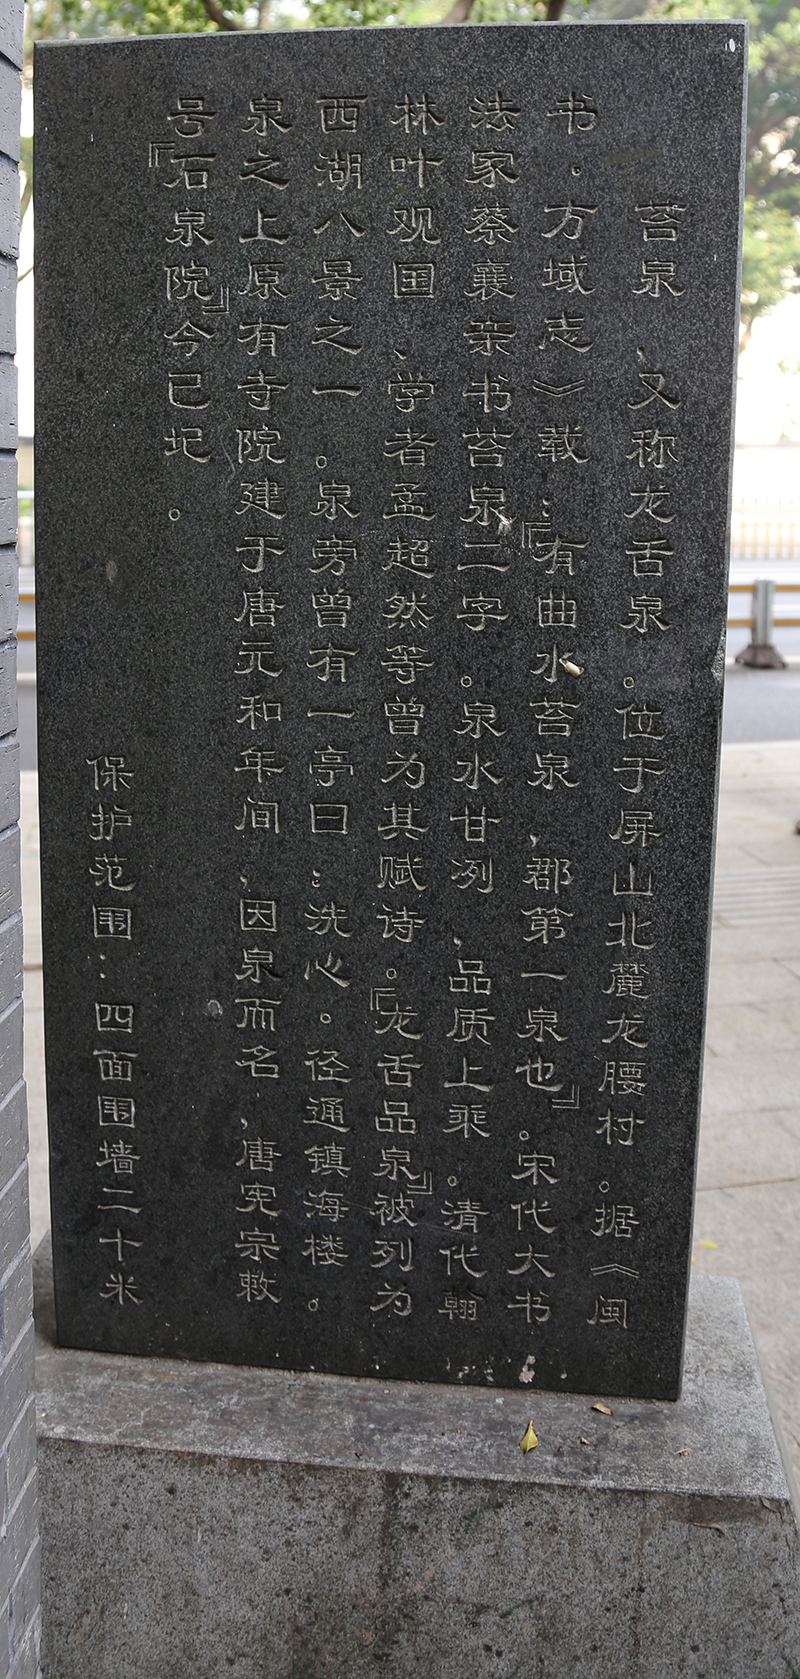 苔泉、又称龙舌泉。位于屏山北麓龙腰村。据《闽
书·方域志》载:『有曲水苔泉,郡第一泉也』。宋代大书
法家蔡襄亲书苔泉二字。泉水甘冽、品质上乘。清代翰
林叶观国、学者孟超然等曾为其赋诗。『龙舌品泉』被列为
西湖八景之一。泉旁曾有一亭曰:洗心。径通镇海楼。
泉之上原有寺院建于唐元和年间,因泉而名,唐宪宗敕
号『石泉院』今已圮。
保护范围:四面围墙二十米